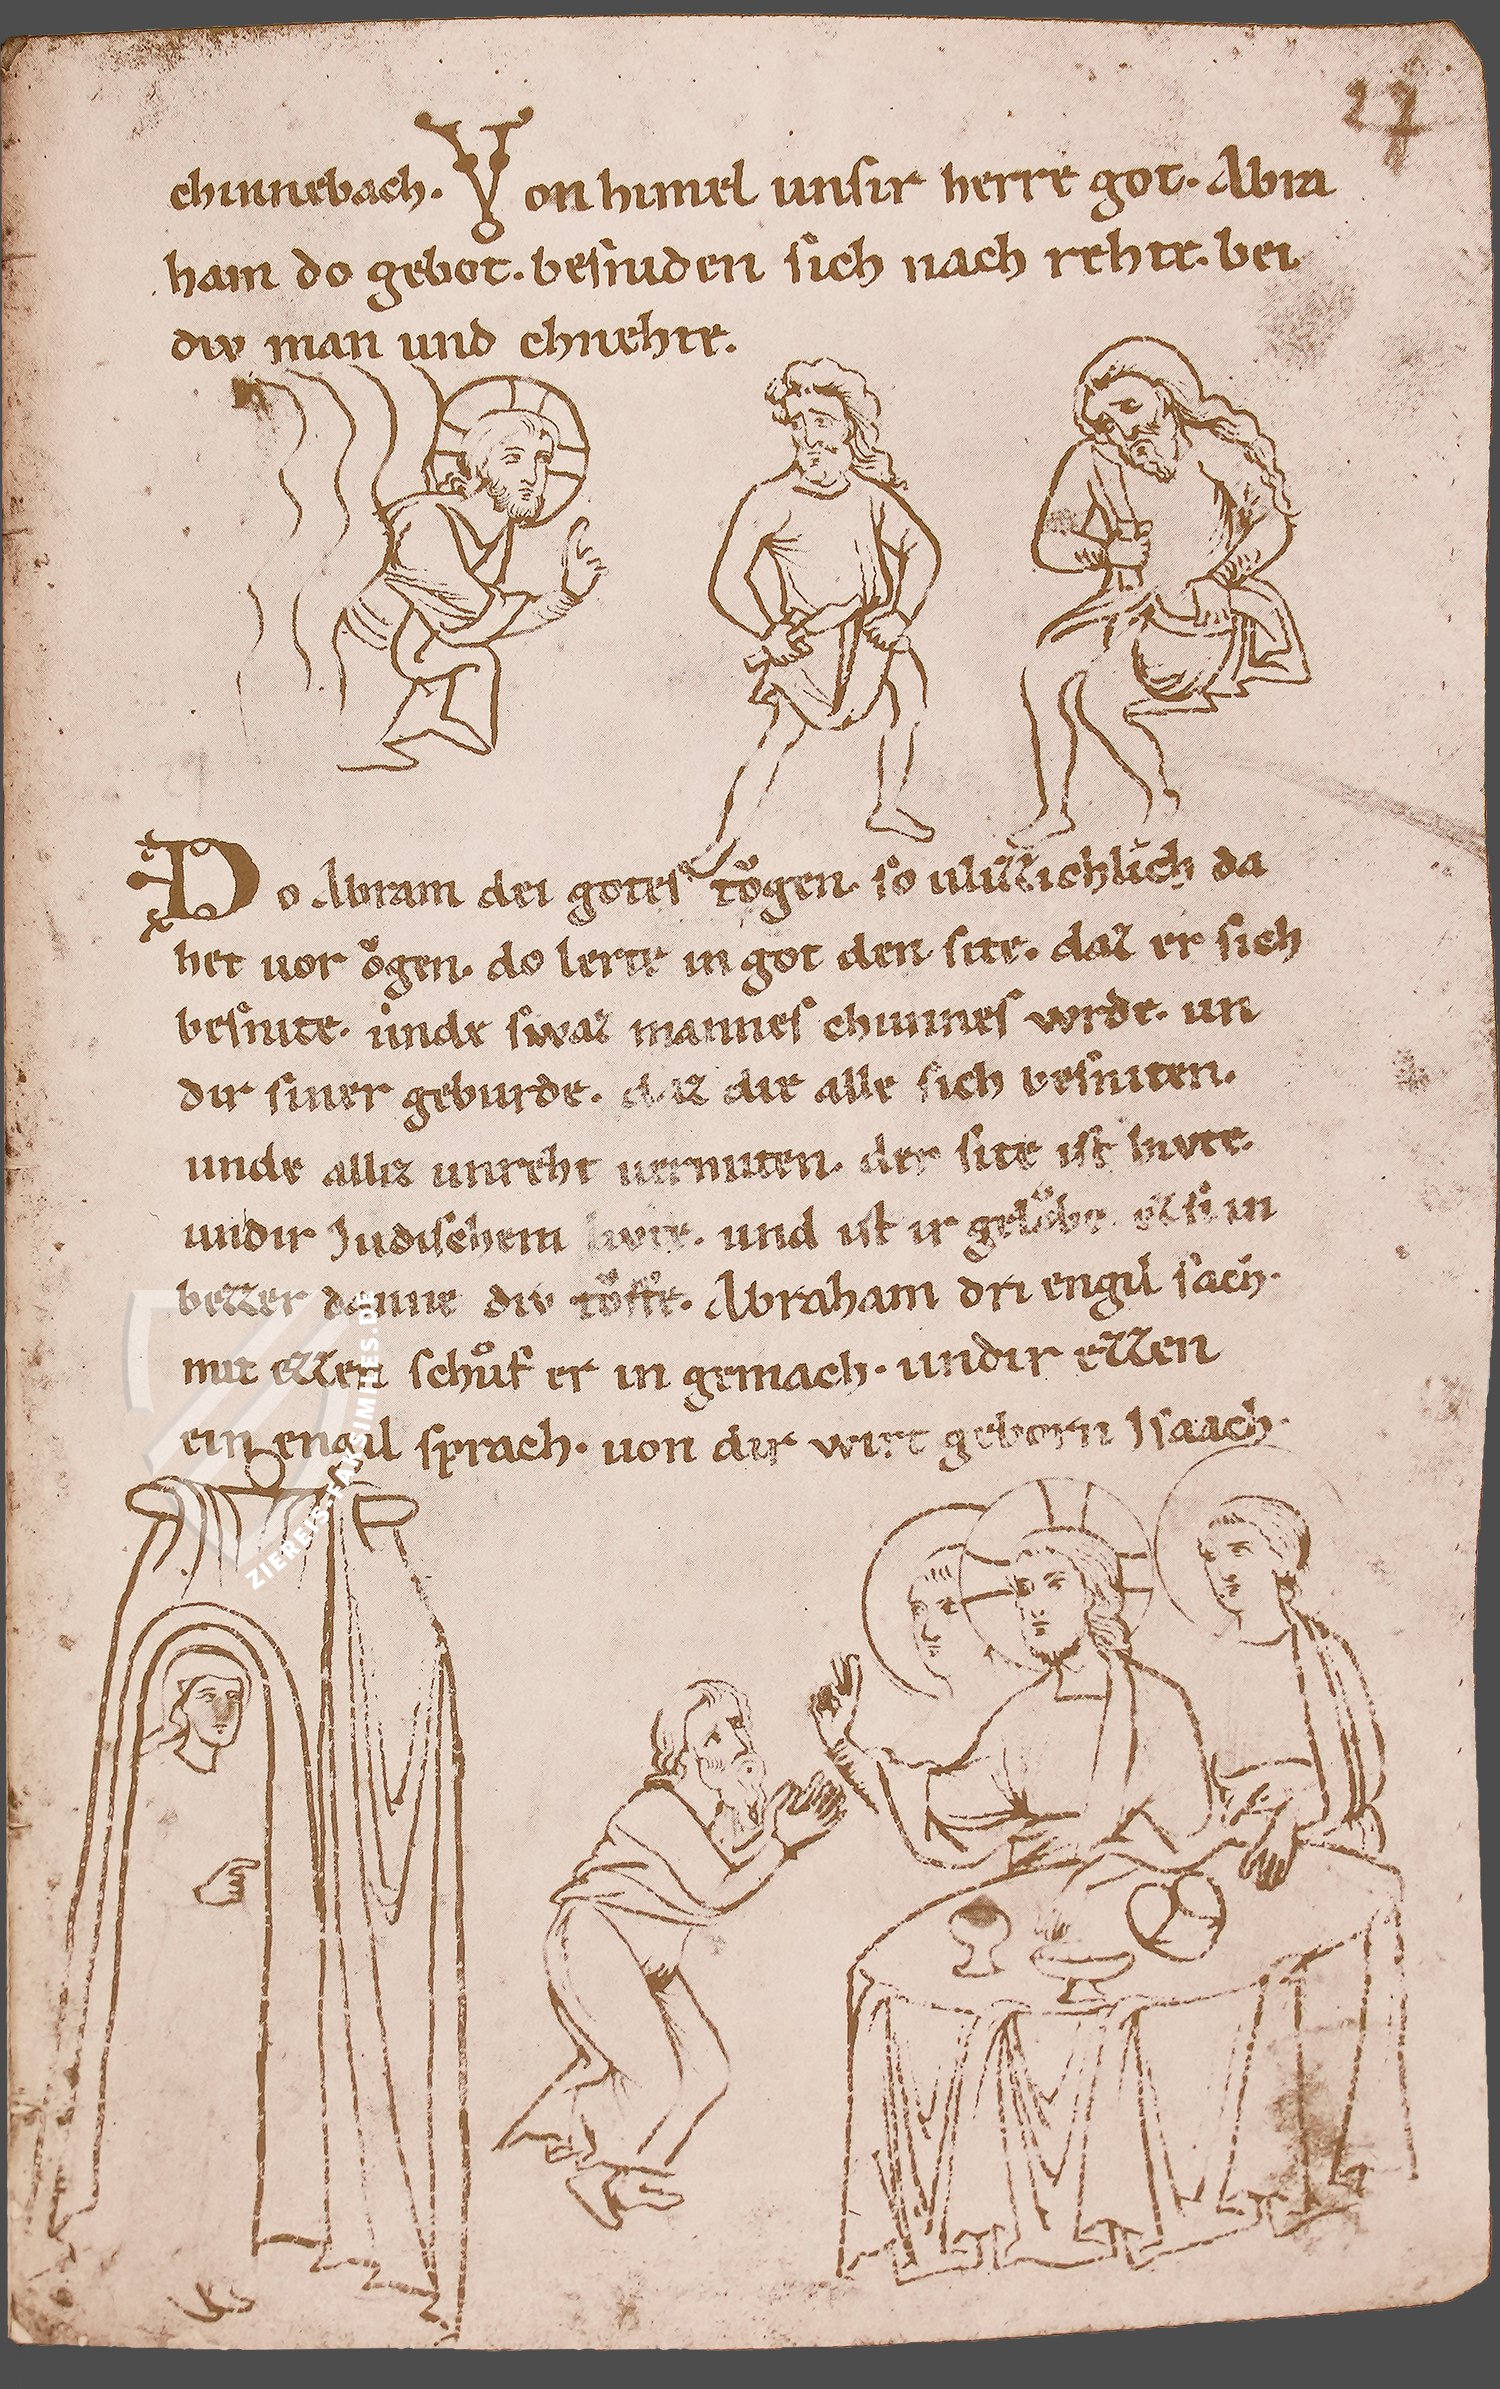 27
chinnebach. Von himel unsir herre got. Abra
ham do gebot. besniden sich nach rehte. bei
div man und chnehte.
Do Abram dei gotes tǒgen. so
da
het uor ǒgen. do lerte in got den site. daz er sich
besnite. unde swaz mannes chunnes wrde. un
dir siner geburde. daz die alle sich besniten.
unde allez unreht uermiten. der site ist hivte.
undir Judischem livte. und ist ir gelǒbe ez si in
bezzer danne div tǒffe. Abraham dri engil sach.
mit ezzen schůf er in gemach. undir ezzen
ein engil sprach. uon dir wirt geborn Isaach.
ZIEREIS-FAKSIMILES.DE